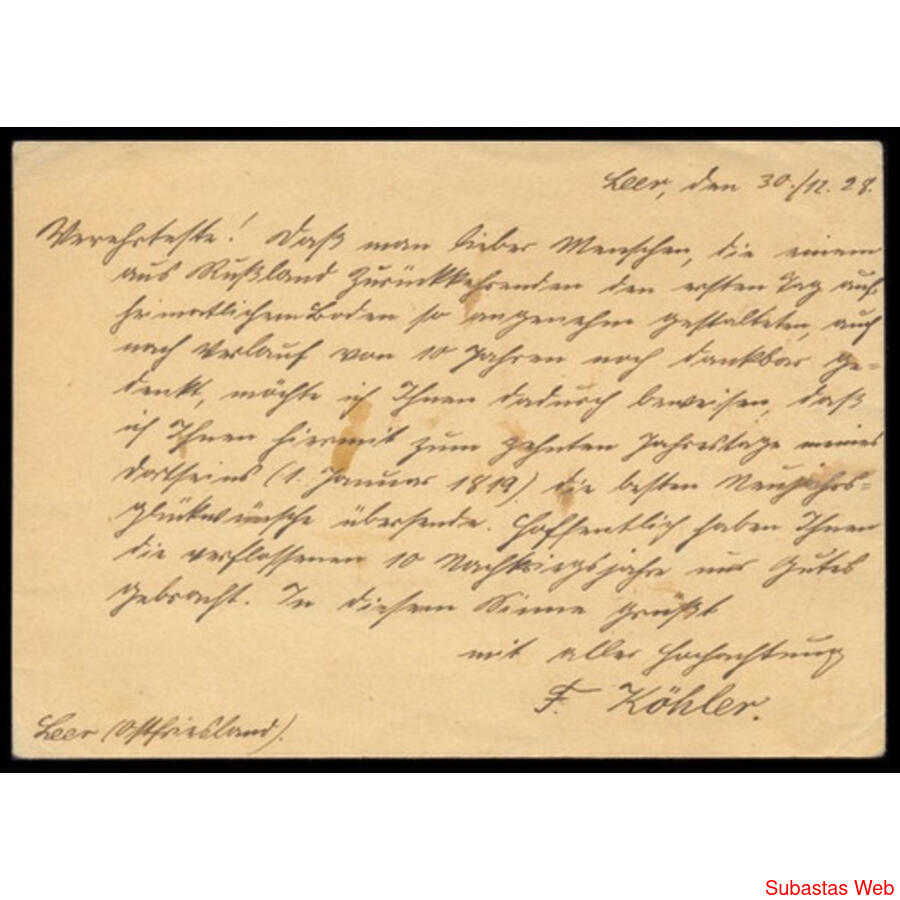 Leer, den 30./12. 28.
Verehrteste! Daß man lieber Menschen, die einem
aus Rußland Zurückkehrenden den ersten Tag auf
heimatlichem Boden so angenehm gestalteten, auch
nach Verlauf von 10 Jahren noch dankbar ge-
denkt, möchte ich Ihnen dadurch beweisen, daß
ich Ihnen hiermit zum zehnten Jahrestage meines
Dortseins (1. Januar 1919) die besten Neujahrs-
glückwünsche übersende. Hoffentlich haben Ihnen
die verflossenen 10 Nachkriegsjahre nur Gutes
gebracht. In diesem Sinne grüßt
mit aller Hochachtung
F. Köhler.
Leer (Ostfriesland).
Subastas Web